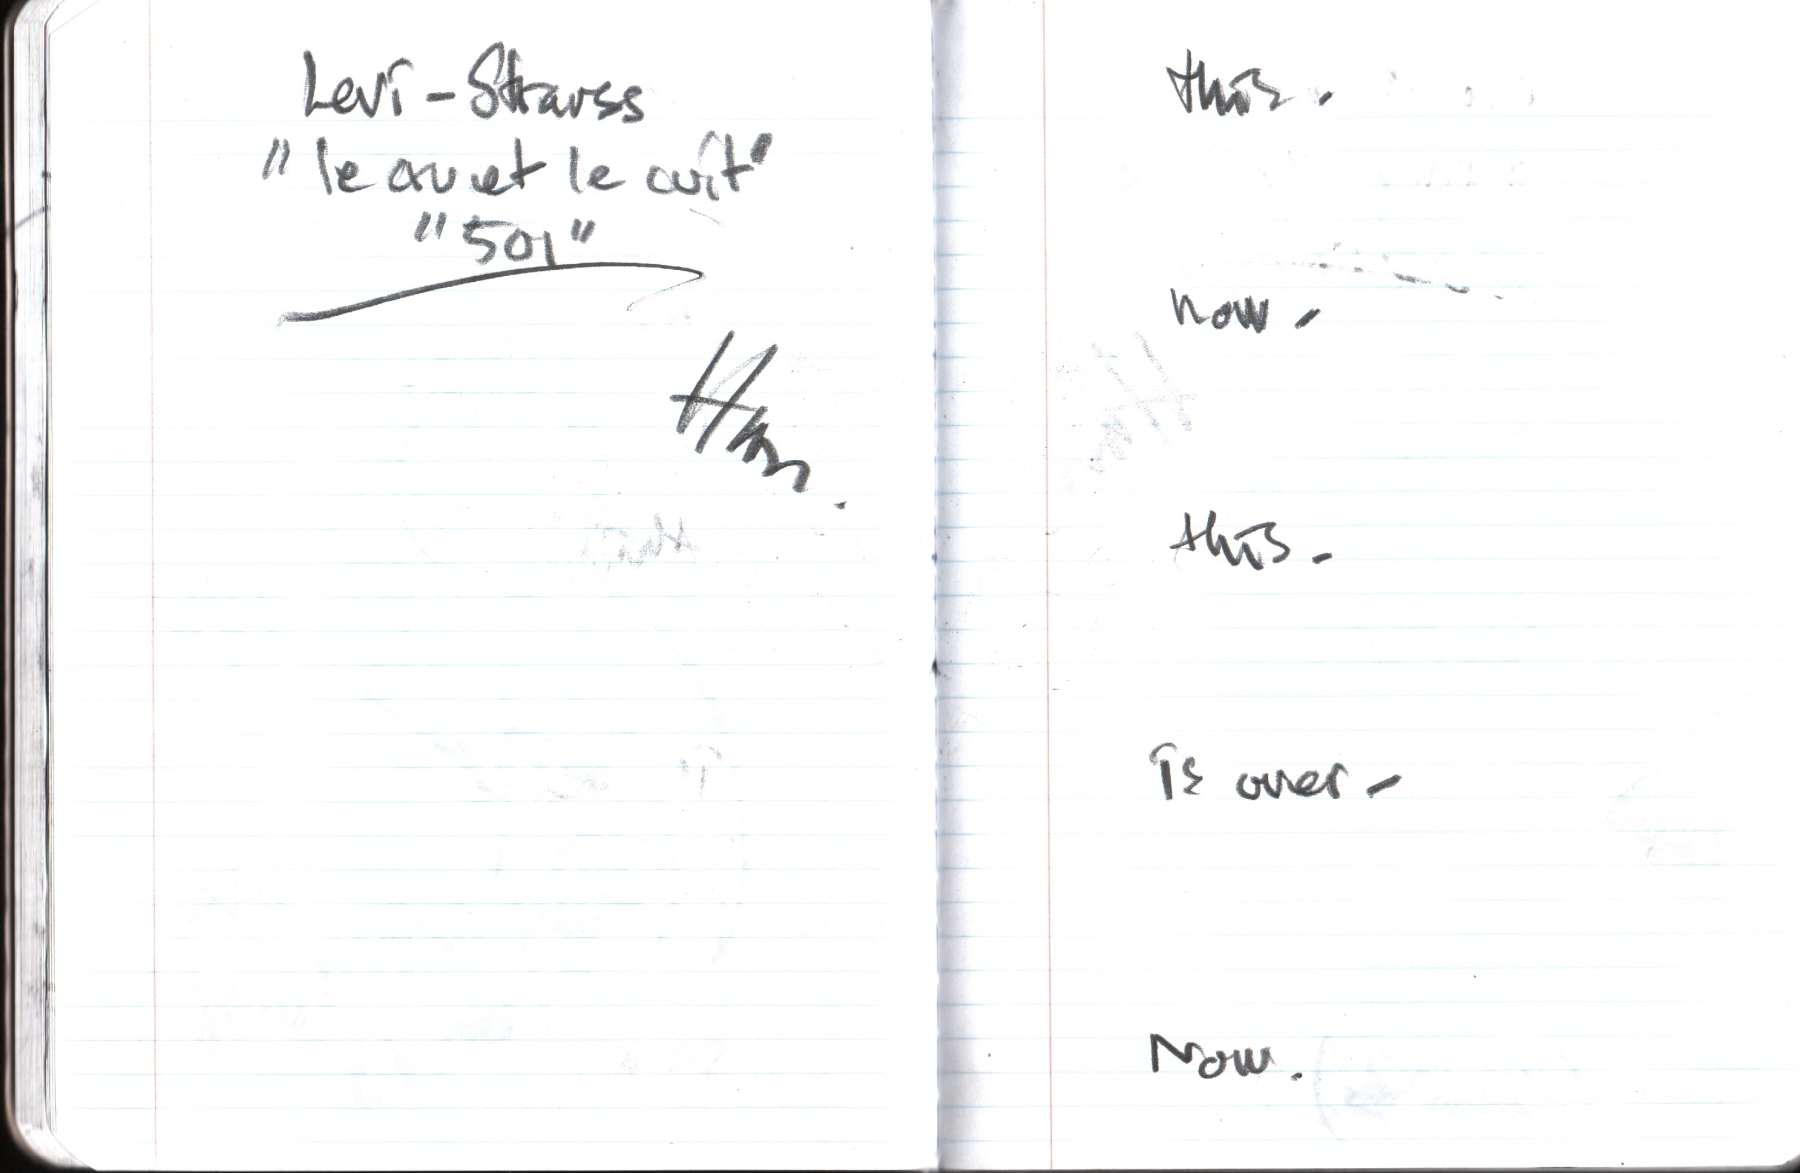 Levi-Strauss
"le cru et le cuit"
"501"
Hmm.
this.
now.
this.
is over.
Now.